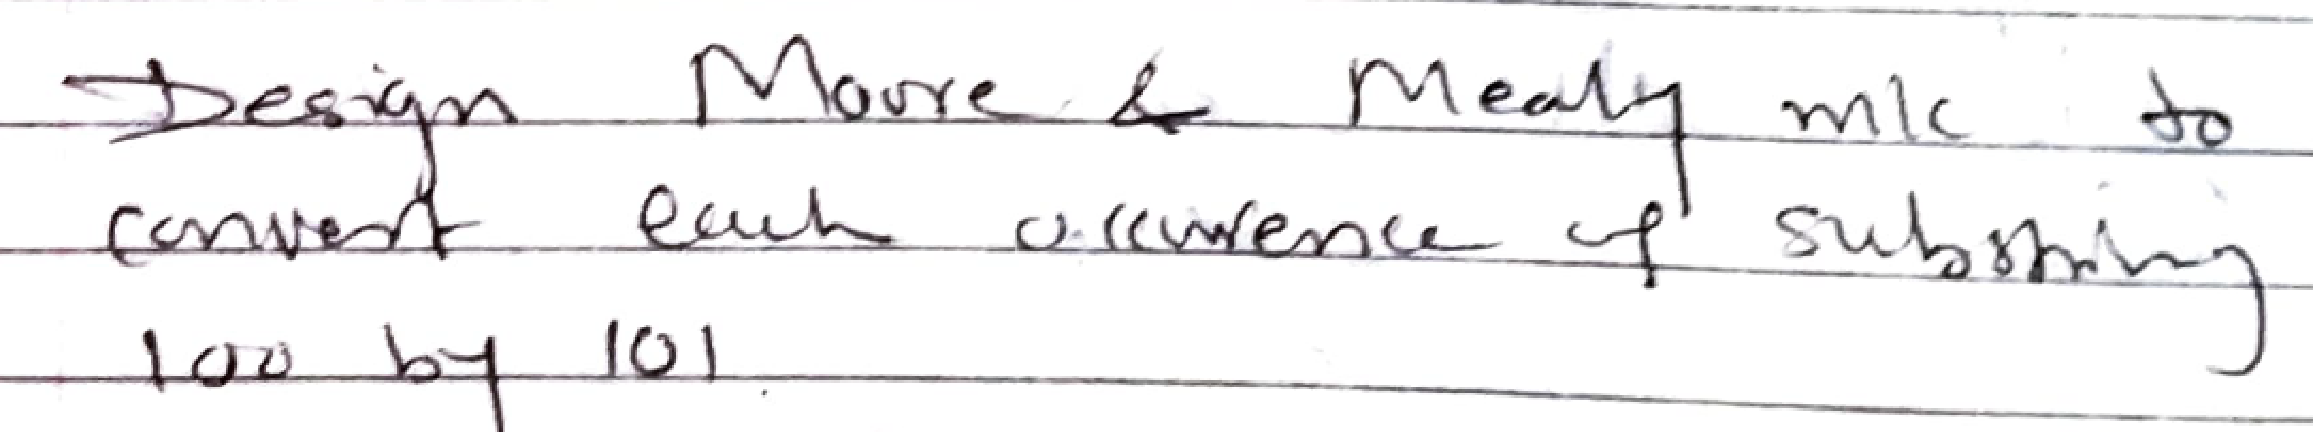 Design Moore & Mealy m/c to
convert each occurence of substring
100 by 101